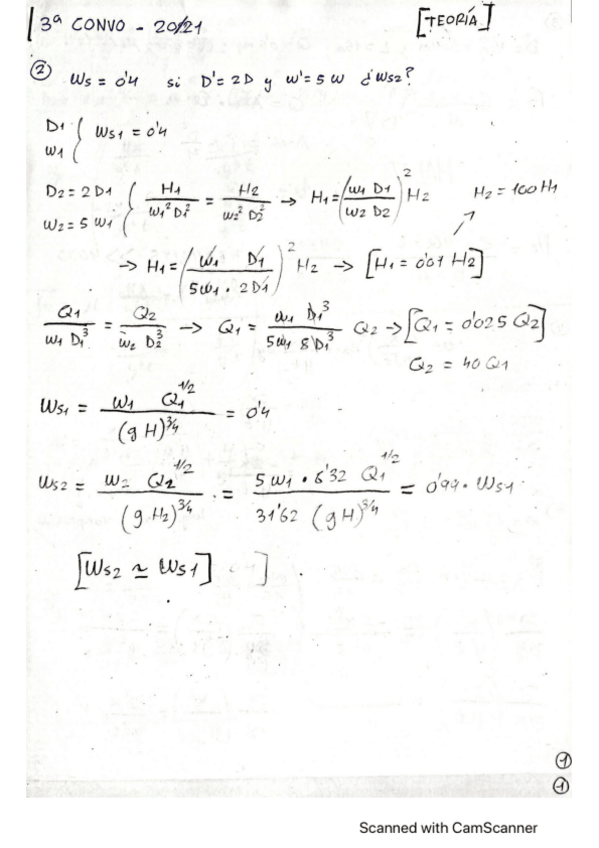 3ª CONVO - 20/21 [TEORÍA]
② Ws = 0'4 si D' = 2D y W' = 5W ¿Ws2?
D1
W1 { Ws1 = 0'4
D2 = 2D1
W2 = 5W1 { H1/(W1² D1²) = H2/(W2² D2²) → H1 = (W1 D1/W2 D2)² H2 H2 = 100 H1
→ H1 = (W1 D1/5W1 · 2D1)² H2 → [H1 = 0'01 H2]
Q1/(W1 D1³) = Q2/(W2 D2³) → Q1 = (W1 D1³/5W1 8 D1³) Q2 → [Q1 = 0'025 Q2]
Q2 = 40 Q1
Ws1 = W1 Q1^1/2/(g H)^3/4 = 0'4
Ws2 = W2 Q2^1/2/(g H2)^3/4 = 5W1 · 6'32 Q1^1/2/31'62 (g H)^3/4 = 0'99 · Ws1
[Ws2 ≃ Ws1] ]
①
①
Scanned with CamScanner